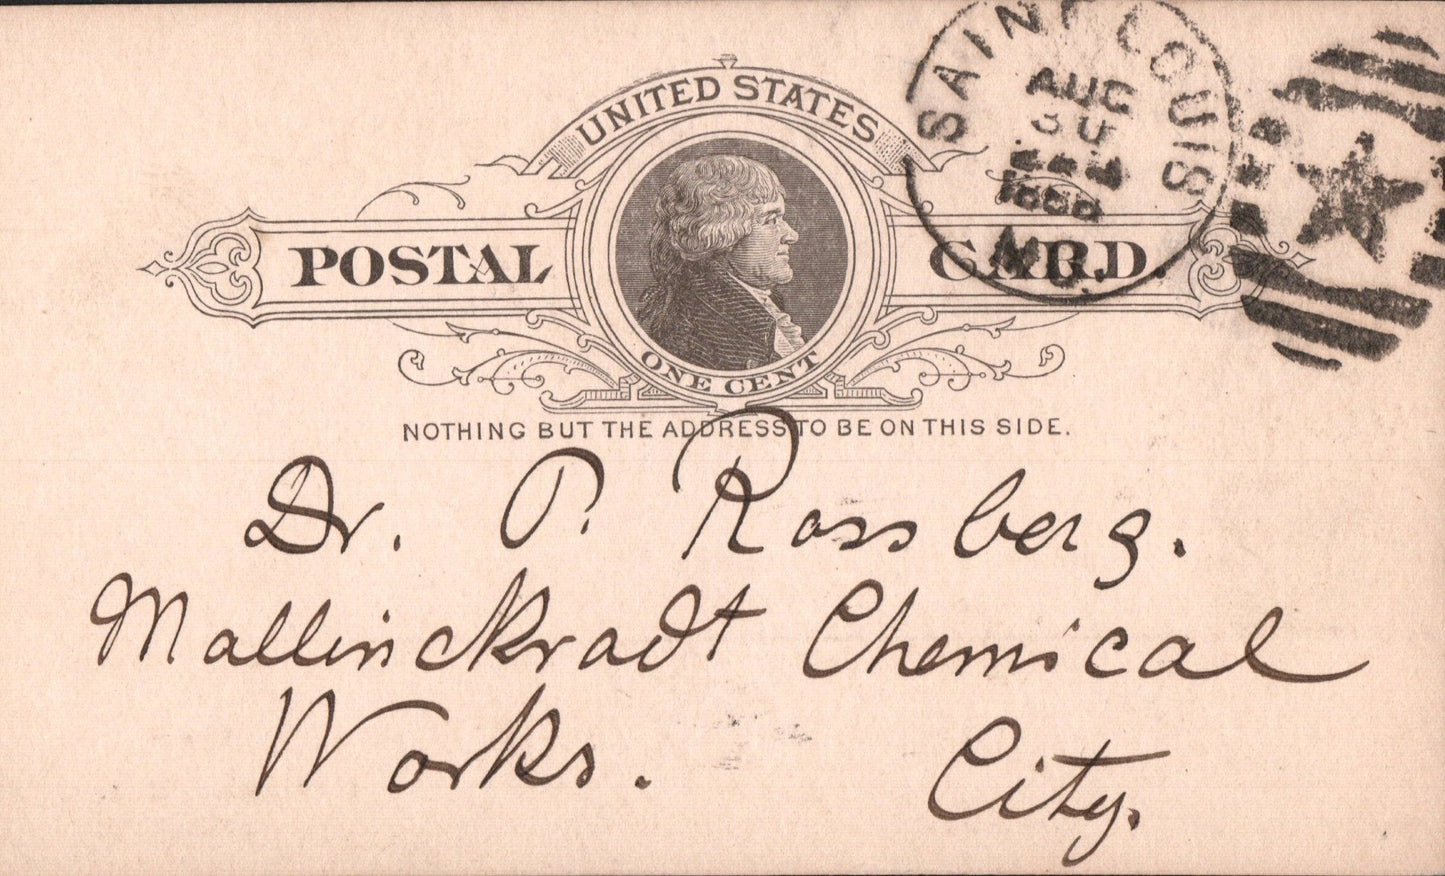 UNITED STATES
POSTAL CARD.
ONE CENT
NOTHING BUT THE ADDRESS TO BE ON THIS SIDE.
SAINT LOUIS
AUG
30
MO.
Dr. P. Rossberg.
Mallinckrodt Chemical
Works.
City.